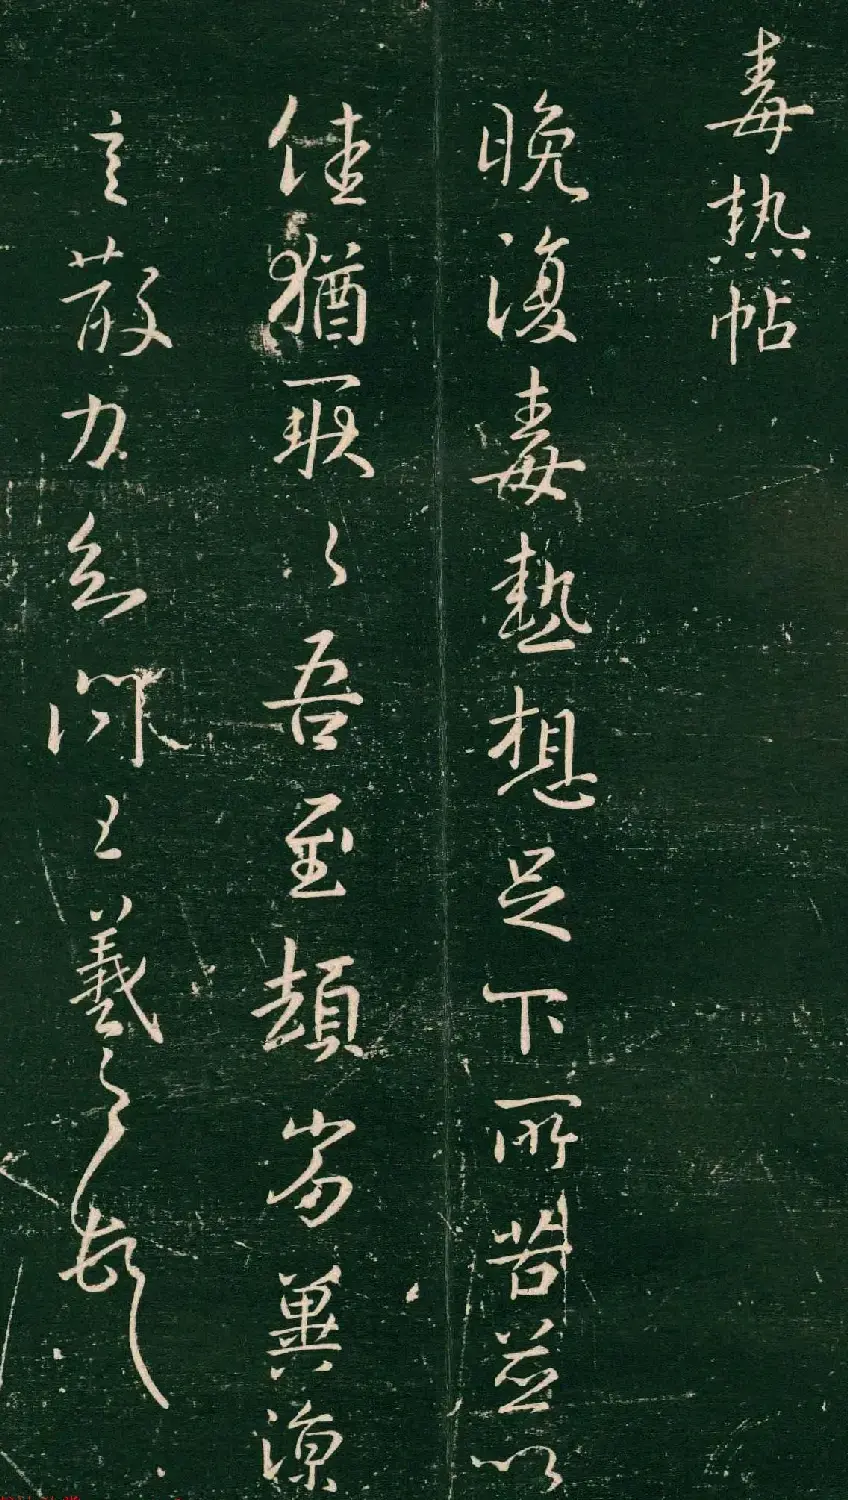 毒热帖
晚復毒熱想足下所苦並以
佳猶耿耿吾至頓劣冀涼
言散力知問王羲之頓